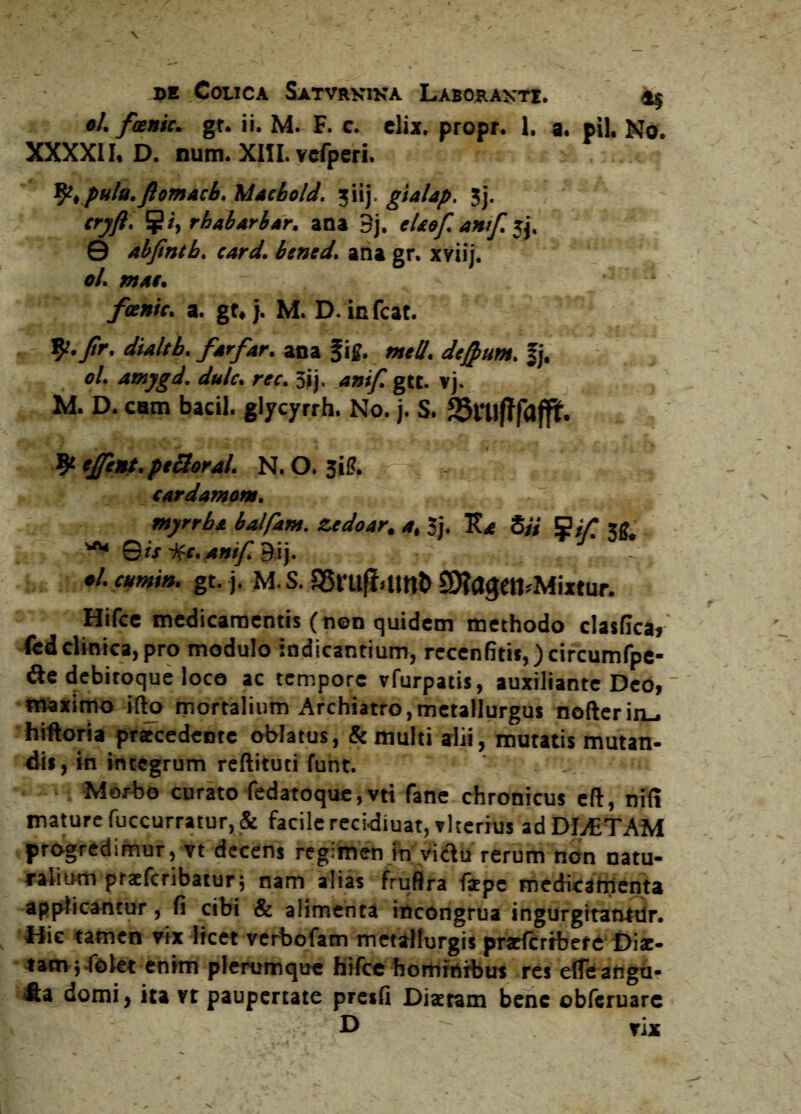 DE COLICA SATVRNINA LABORANTI. 25
ol. fœnic. gt. ii. M. F. c. elix. propr. l. a. pil. No.
XXXXII. D. num. XIII. veſperi.
℞. pulu. ſtomach. Machold. ʒiij. gialap. ʒj.
cryſt. ☿i, rhabarbar. ana ℈j. elæoſ. aniſ. ʒj.
Θ abſinth. card. bened. ana gr. xviij.
ol. mac.
fœnic. a. gt. j. M. D. in ſcat.
℞. ſir. dialth. farfar. ana ℥iß. mell. deſpum. ℥j.
ol. amygd. dulc. rec. ʒij. aniſ. gtt. vj.
M. D. cum bacil. glycyrrh. No. j. S. Bruſtſafft.
℞ eſſent. pectoral. N. O. ʒiß.
cardamom.
myrrhæ balſam. zedoar. a, ʒj.
aniſ. ℈ij.
ol. cumin. gt. j. M. S. Bruſt-und Magen-Mixtur.
Hiſce medicamentis (non quidem methodo clasſica,
ſed clinica, pro modulo indicantium, recenſitis,) circumſpe-
cte debitoque loco ac tempore vſurpatis, auxiliante Deo,
maximo iſto mortalium Archiatro, metallurgus noſter in
hiſtoria præcedente oblatus, & multi alii, mutatis mutan-
dis, in integrum reſtituti ſunt.
Morbo curato ſedatoque, vti ſane chronicus eſt, niſi
mature ſuccurratur, & facile recidiuat, vlterius ad DIÆTAM
progredimur, vt decens regimen in victu rerum non natu-
ralium præſcribatur; nam alias fruſtra ſæpe medicamenta
applicantur, ſi cibi & alimenta incongrua ingurgitantur.
Hic tamen vix licet verboſam metallurgis præſcribere Diæ-
tam; ſolet enim plerumque hiſce hominibus res eſſe angu-
ſta domi, ita vt paupertate presſi Diætam bene obſeruare
D vix